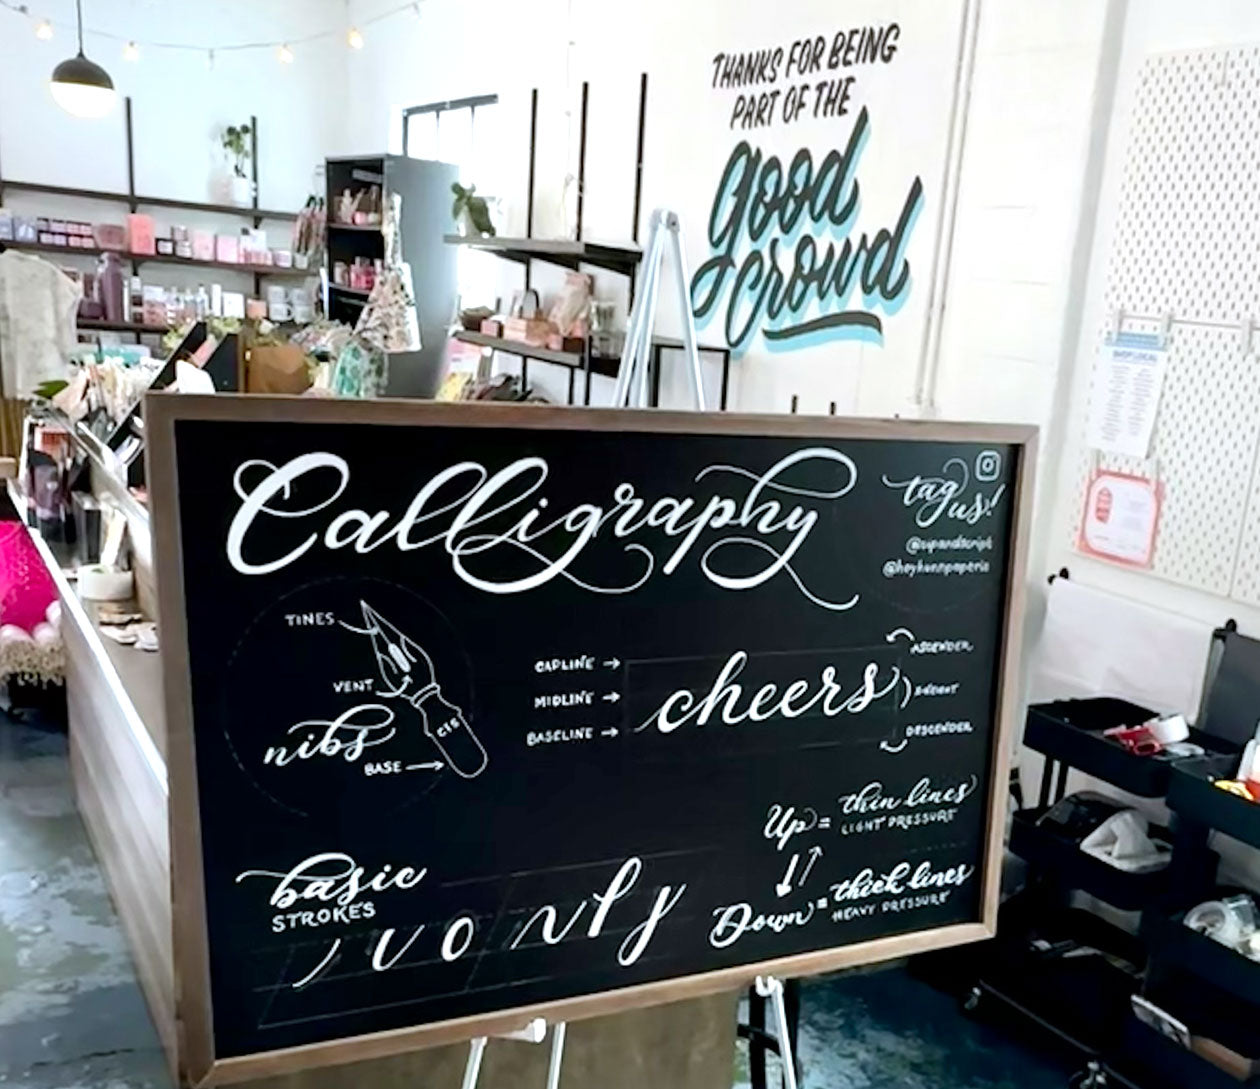 THANKS FOR BEING
PART OF THE
good
crowd
SHOP LOCAL
Calligraphy
tag
us!
@sipandscript
@heyhunnpaperie
TINES
VENT
nibs
BASE
CAPLINE →
MIDLINE →
BASELINE →
cheers
ASCENDER
X-HEIGHT
DESCENDER
basic
STROKES
Up = thin lines
LIGHT PRESSURE
Down = thick lines
HEAVY PRESSURE